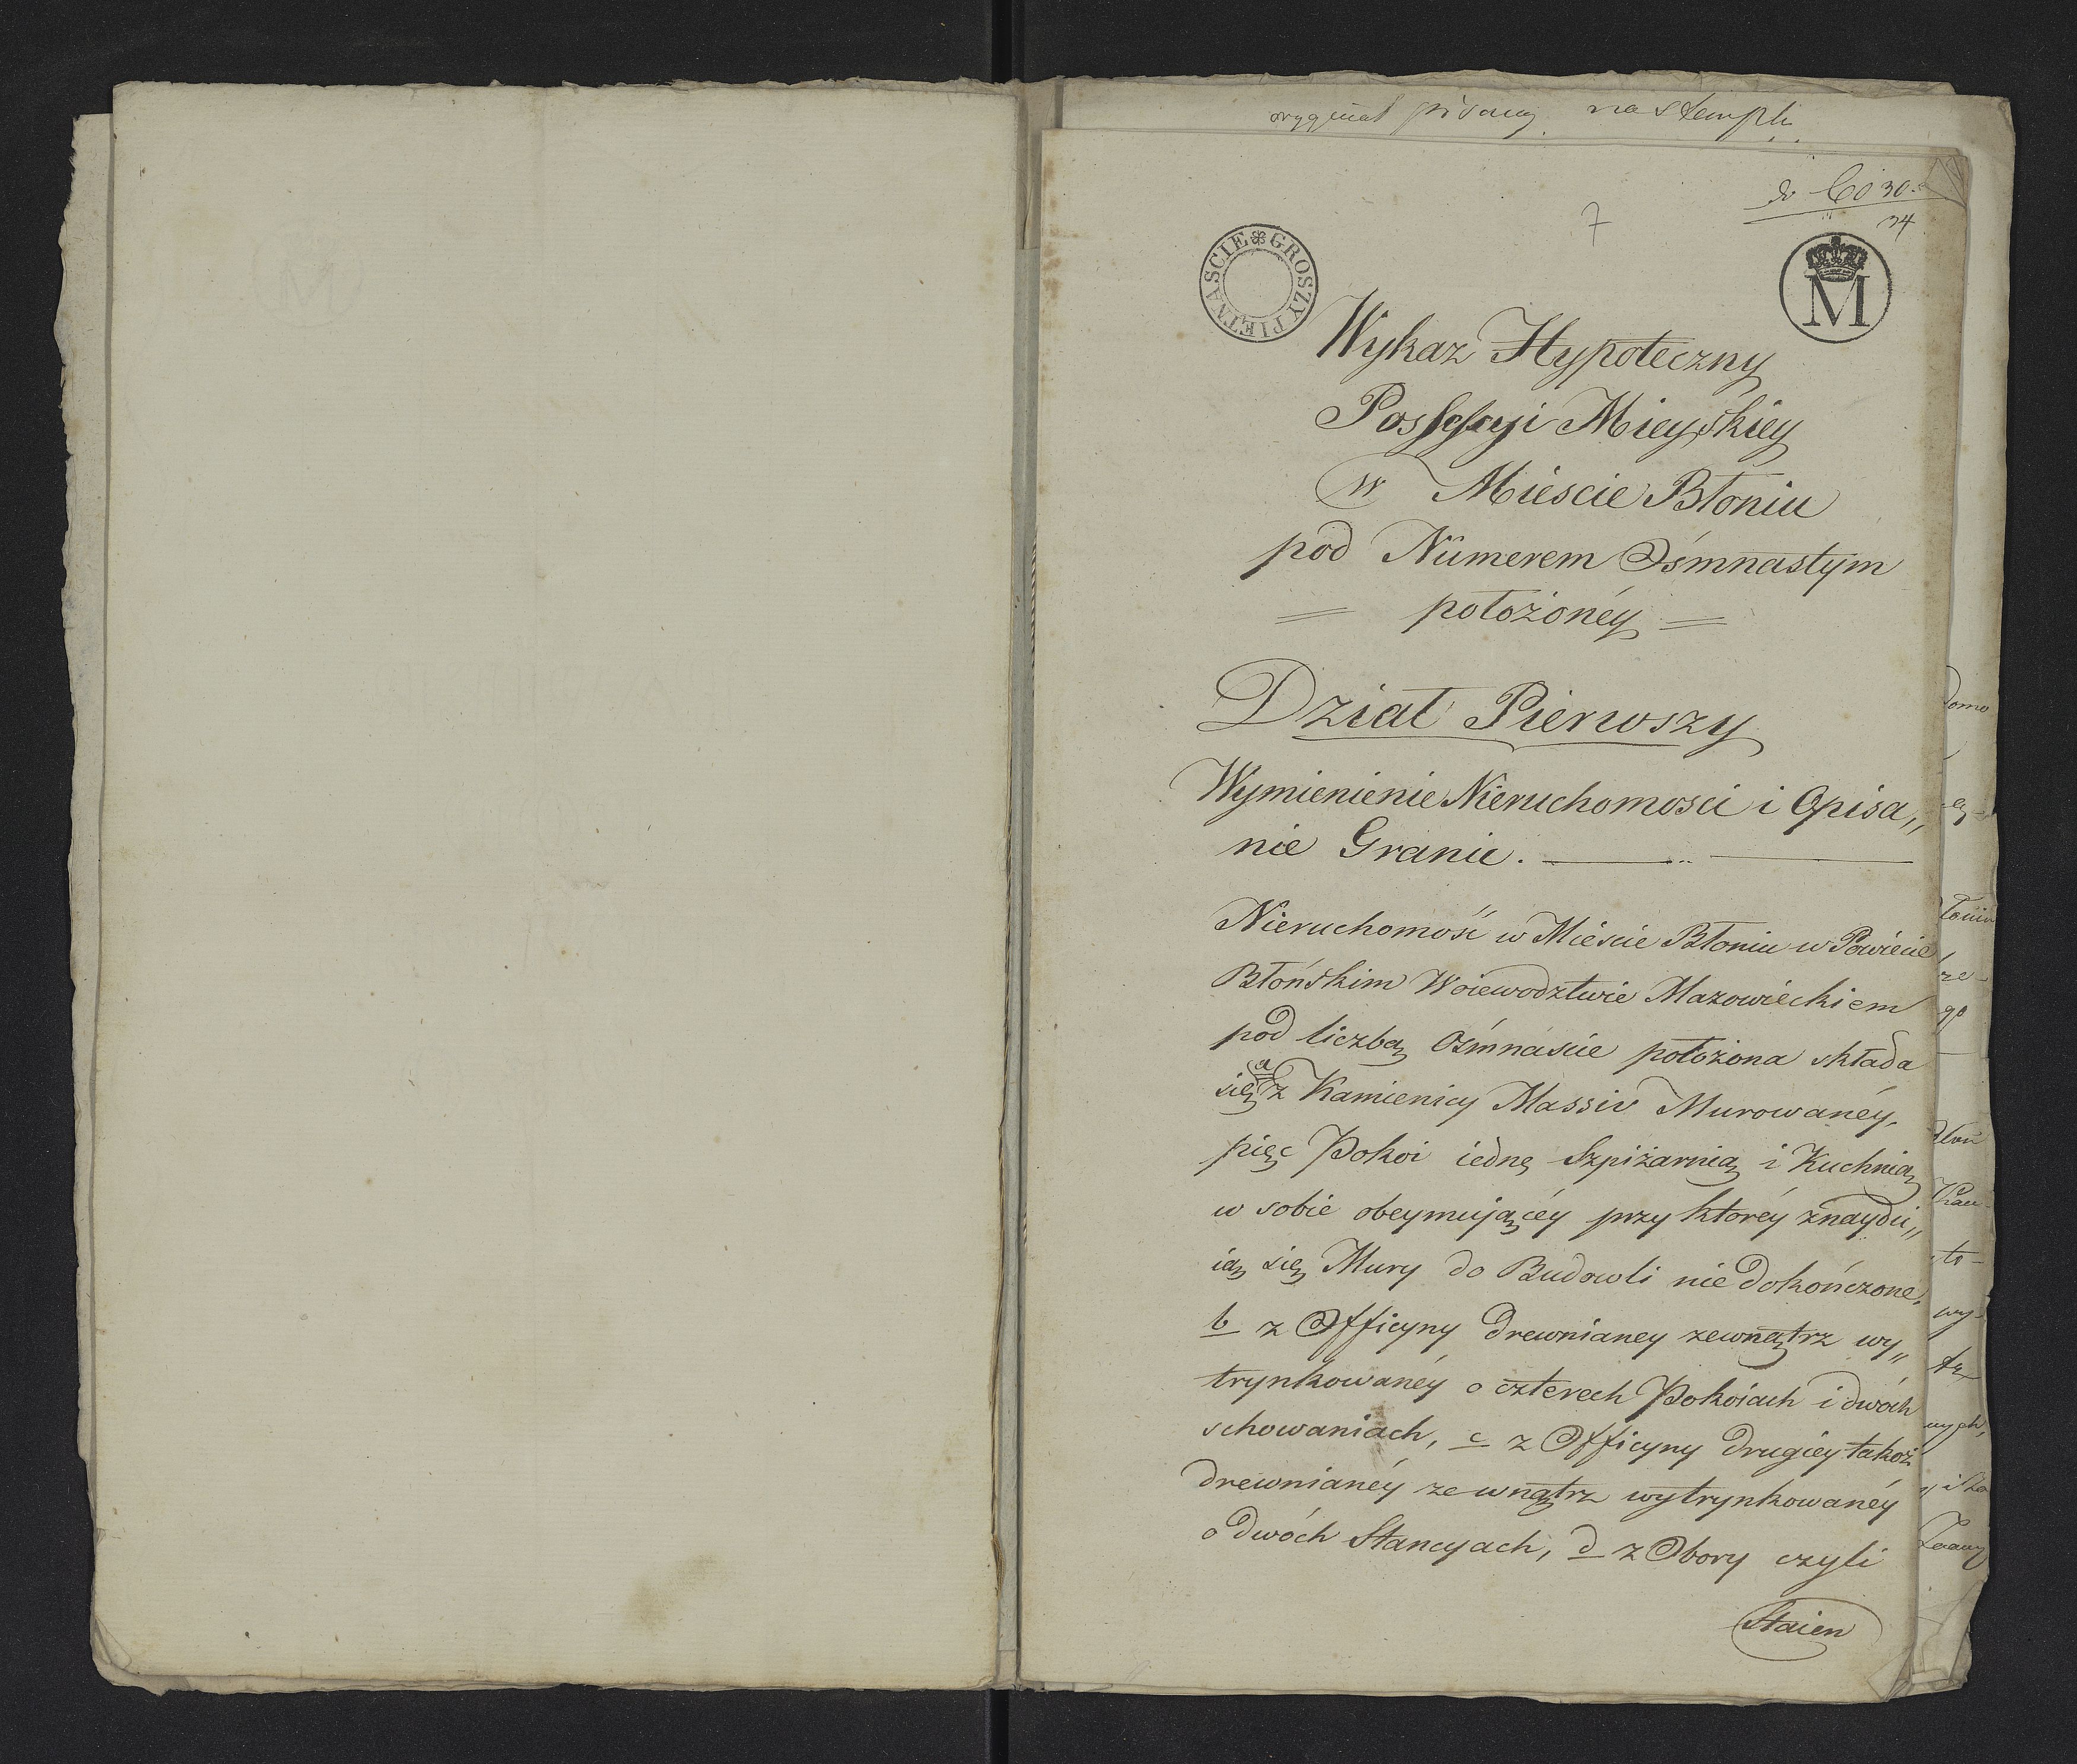 oryginał pisany na stemplu
7
34
GROSZY PIĘTNAŚCIE
M
Wykaz Hypoteczny
Possessyi Mieyskiey
w Mieście Błoniu
pod Numerem Ośmnastym
= położonéy =
Dział Pierwszy
Wymienienie Nieruchomosci i Opisa„
nie Granic.
Nieruchomość w Mieście Błoniu w Powiecie
Błońskim Woiewodztwie Mazowieckiem
pod liczbą Ośmnaście położona składa
się a z Kamienicy Massiv Murowanéy,
pięc Pokoi iednę Szpiżarnią i Kuchnią
w sobie obeymuiącéy przy któréy znaydu„
ią się Mury do Budowli nie dokończone,
b z Officyny drewnianey zewnątrz wy„
trynkowanéy o czterech Pokoiach i dwóch
schowaniach, c z Officyny drugiey takoż
drewnianéy ze wnątrz wytrynkowanéy
o dwóch Stancyach, d z Obory czyli
Staien